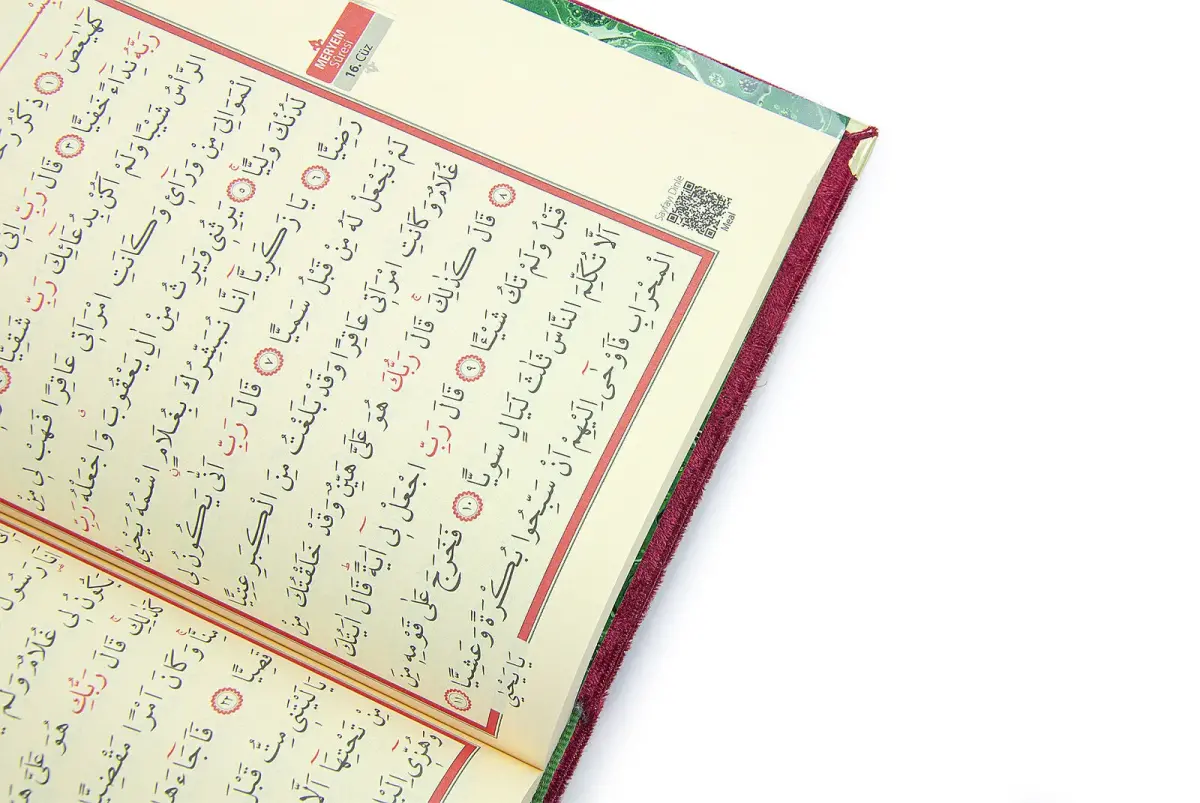 MERYEM
Sûresi
16. Cüz
Sayfayı Dinle
Meal
كٓهٰيٰعٓصٓ ﴿١﴾ ذِكْرُ
رَبَّهُ نِدَٓاءً خَفِيًّا ﴿٣﴾ قَالَ رَبِّ اِنّٖى
الرَّأْسُ شَيْبًا وَلَمْ اَكُنْ بِدُعَٓائِكَ رَبِّ شَقِيًّا
الْمَوَالِىَ مِنْ وَرَٓائٖى وَكَانَتِ امْرَاَتٖى عَاقِرًا فَهَبْ لٖى مِنْ
لَدُنْكَ وَلِيًّاۙ ﴿٥﴾ يَرِثُنٖى وَيَرِثُ مِنْ اٰلِ يَعْقُوبَ وَاجْعَلْهُ رَبِّ
رَضِيًّا ﴿٦﴾ يَا زَكَرِيَّٓا اِنَّا نُبَشِّرُكَ بِغُلَامٍ اسْمُهُ يَحْيٰىۙ
لَمْ نَجْعَلْ لَهُ مِنْ قَبْلُ سَمِيًّا ﴿٧﴾ قَالَ رَبِّ اَنّٰى يَكُونُ لٖى
غُلَامٌ وَكَانَتِ امْرَاَتٖى عَاقِرًا وَقَدْ بَلَغْتُ مِنَ الْكِبَرِ عِتِيًّا
﴿٨﴾ قَالَ كَذٰلِكَۚ قَالَ رَبُّكَ هُوَ عَلَىَّ هَيِّنٌ وَقَدْ خَلَقْتُكَ مِنْ
قَبْلُ وَلَمْ تَكُ شَيْئًا ﴿٩﴾ قَالَ رَبِّ اجْعَلْ لٖٓى اٰيَةًۜ قَالَ اٰيَتُكَ
اَلَّا تُكَلِّمَ النَّاسَ ثَلٰثَ لَيَالٍ سَوِيًّا ﴿١٠﴾ فَخَرَجَ عَلٰى قَوْمِهٖ مِنَ
الْمِحْرَابِ فَاَوْحٰٓى اِلَيْهِمْ اَنْ سَبِّحُوا بُكْرَةً وَعَشِيًّا ﴿١١﴾
يَا يَحْيٰى
اَنَا رَسُولُ
يَكُونُ لٖى غُلَامٌ وَلَمْ
كَذٰلِكِۚ قَالَ رَبُّكِ هُوَ عَلَىَّ
مِنَّاۚ وَكَانَ اَمْرًا مَقْضِيًّا
قَصِيًّا ﴿٢٢﴾ فَاَجَٓاءَهَا
يَا لَيْتَنٖى مِتُّ قَبْلَ
مِنْ تَحْتِهَٓا اَلَّا
وَهُزّٖٓى